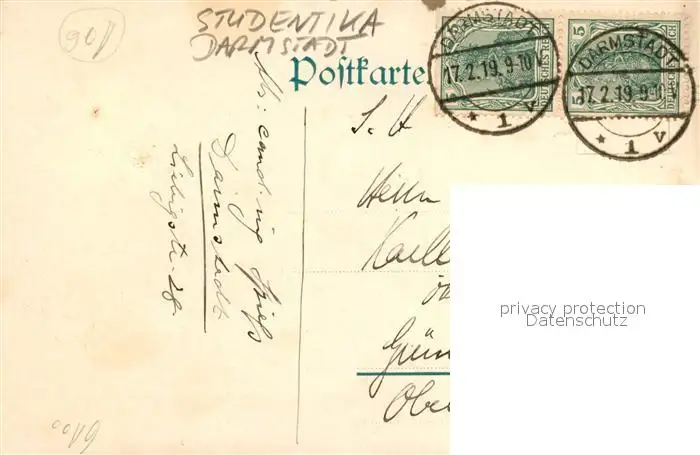 STUDENTIKA
DARMSTADT
Postkarte
DARMSTADT
17.2.19. 9-10 V
* 1 v
DARMSTADT
17.2.19. 9-10 V
* 1 v
5
DEUTSCHES REICH
cand. ing.
Darmstadt
Liebigstr. 28
S. H
Herrn
Karl
Grün
Obe
privacy protection
Datenschutz